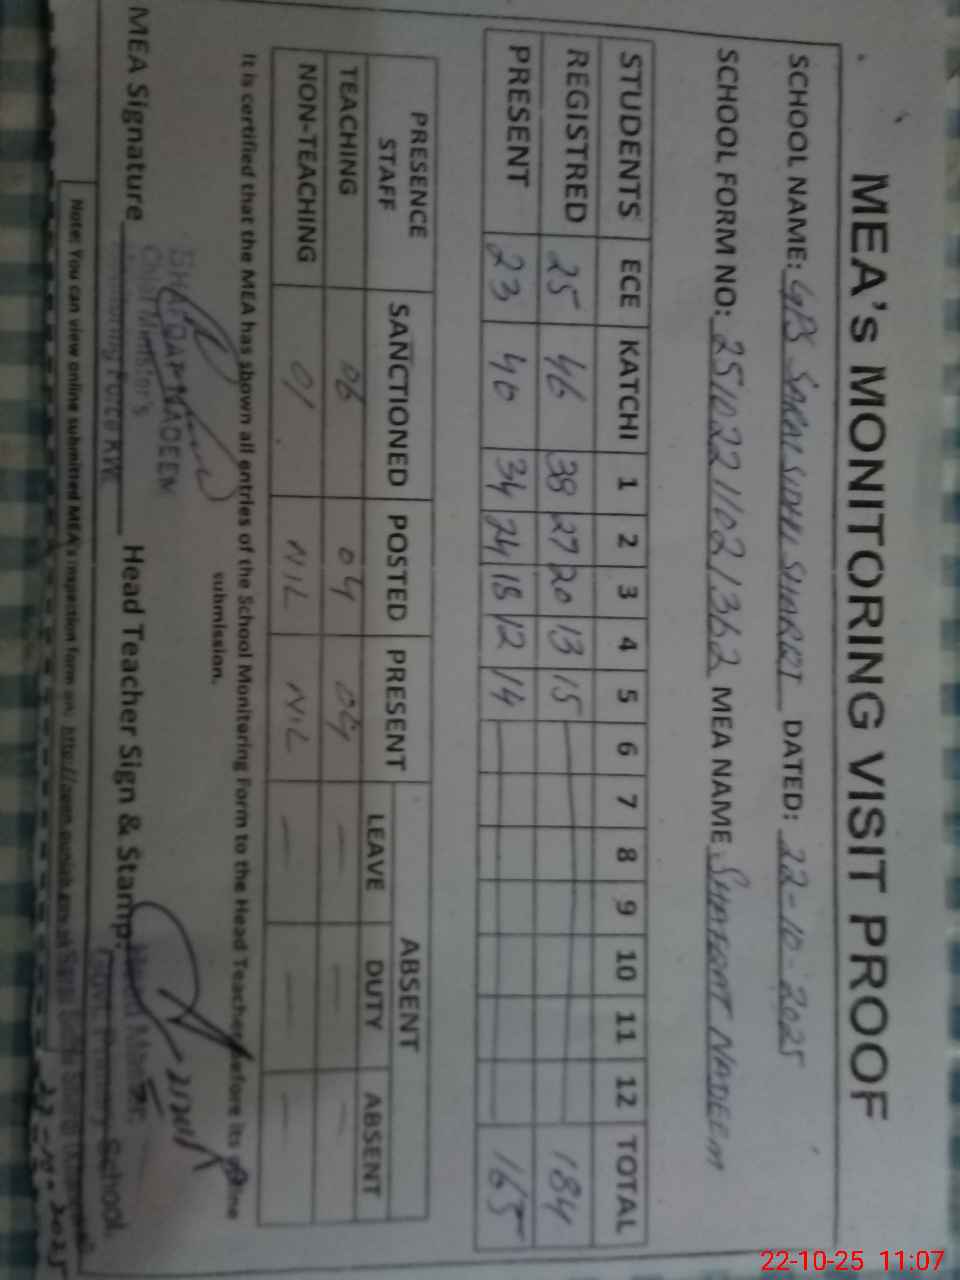 MEA's MONITORING VISIT PROOF
SCHOOL NAME: GPS SARAI SIDHU SHARRI DATED: 22-10-2025
SCHOOL FORM NO: 25102211021362 MEA NAME SHAFQAT NADEEM
STUDENTS ECE KATCHI 1 2 3 4 5 6 7 8 9 10 11 12 TOTAL
REGISTRED 25 46 38 27 20 13 15 184
PRESENT 23 40 34 24 18 12 14 165
PRESENCE STAFF SANCTIONED POSTED PRESENT ABSENT
LEAVE DUTY ABSENT
TEACHING 06 04 04 — — —
NON-TEACHING 01 NIL NIL — — —
It is certified that the MEA has shown all entries of the School Monitoring Form to the Head Teacher before its online
submission.
MEA Signature Head Teacher Sign & Stamp:
SHAFQAT NADEEM
Chief Minister's
Monitoring Force KW
Primary School
Note: You can view online submitted MEA's inspection form on:
22-10-2025
22-10-25 11:07